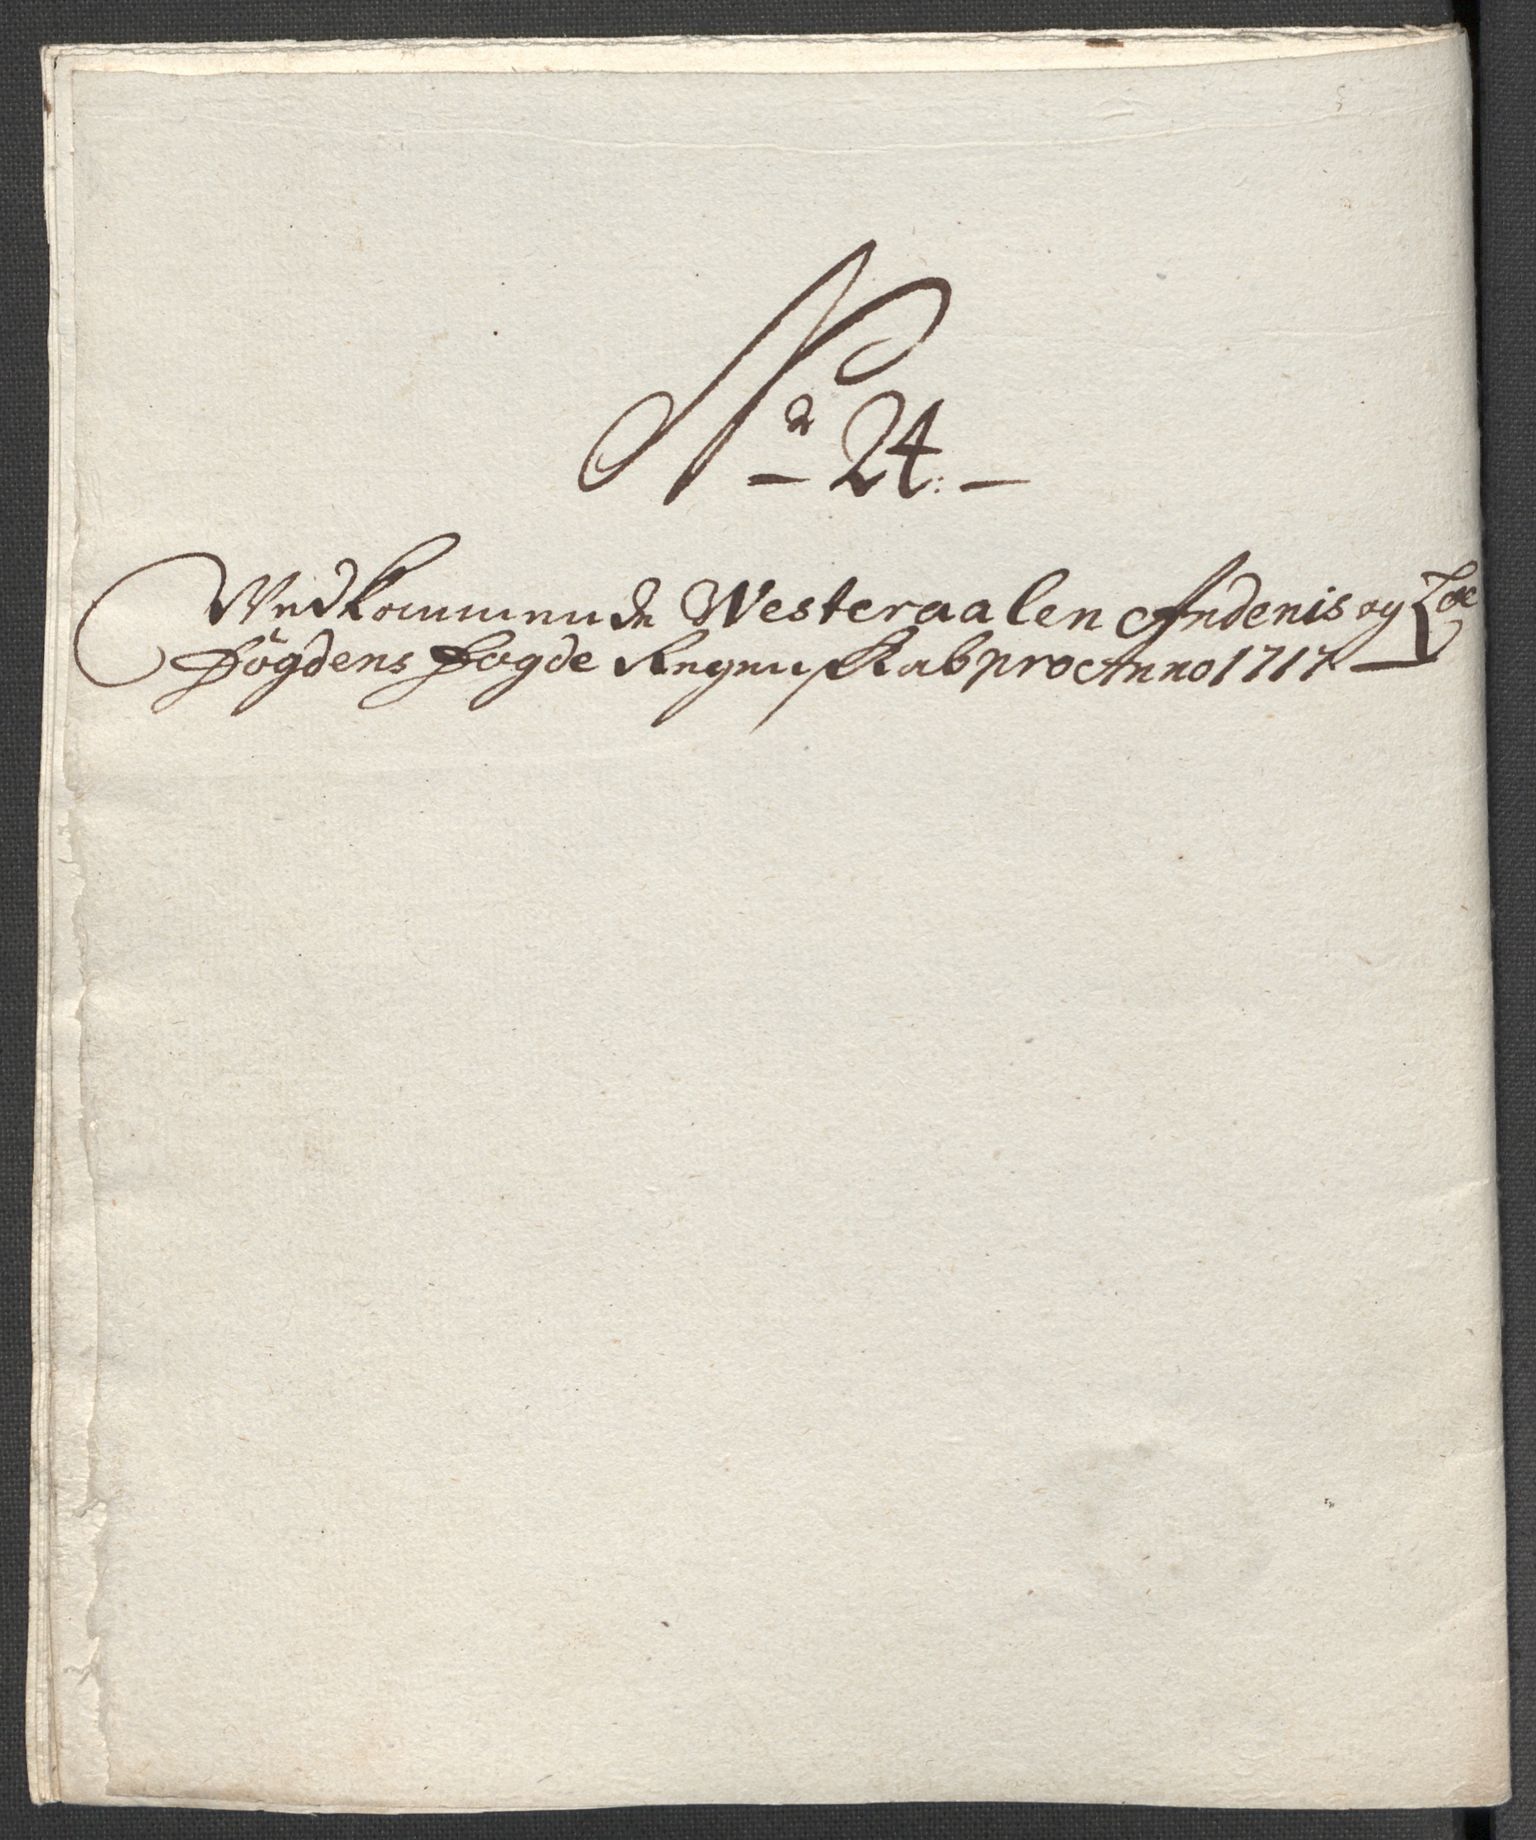 No 24.
Vedkommende Westeraalen Andenis og Lof
Fögdens Fogde Regnskab pro Anno 1717